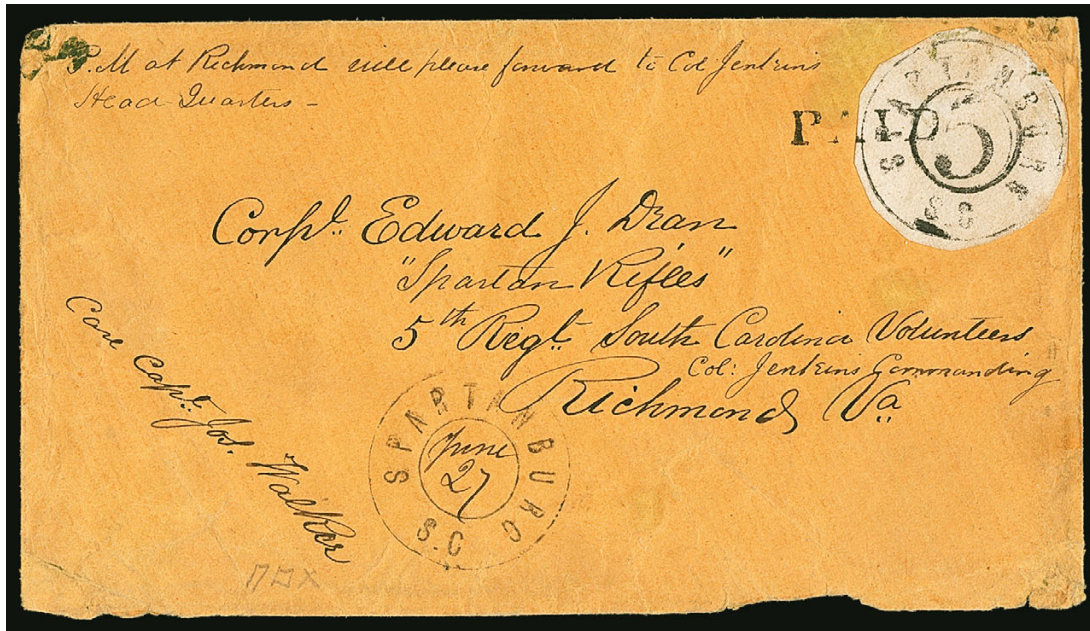 P.M at Richmond will please forward to Col Jenkins
Head Quarters -
PAID
SPARTANBURG S.C
5
Corpl. Edward J. Dean
"Spartan Rifles"
5th Regt. South Carolina Volunteers
Col: Jenkins Commanding
Richmond Va
Care Capt. Jos. Walker
SPARTANBURG S.C
June
27